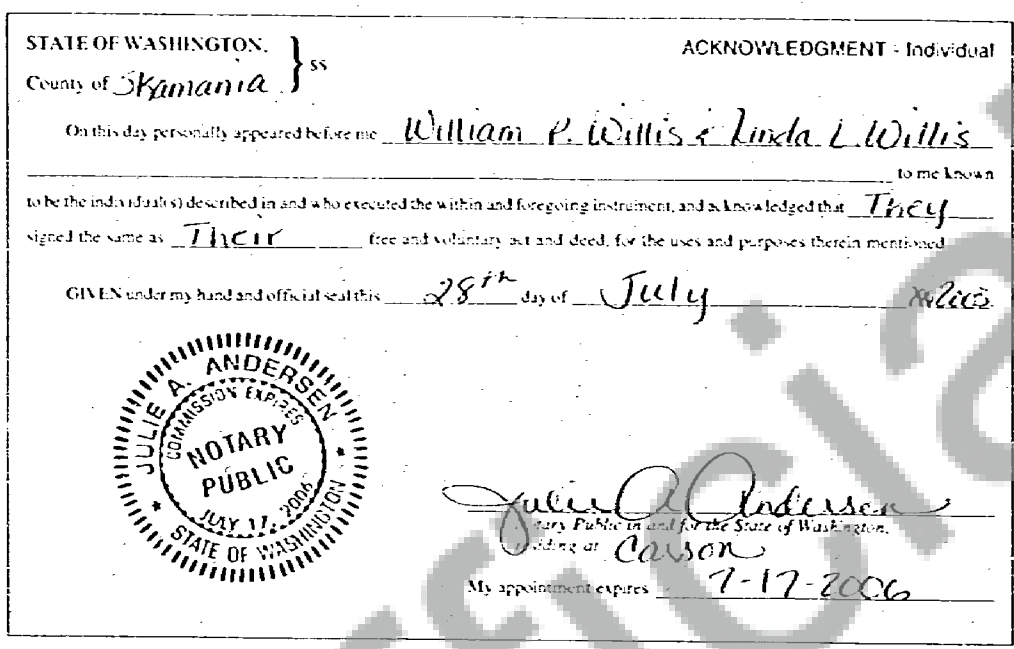 STATE OF WASHINGTON,
ACKNOWLEDGMENT - Individual
County of Skamania } ss
On this day personally appeared before me William P. Willis & Linda L. Willis
to me known
to be the individual(s) described in and who executed the within and foregoing instrument, and acknowledged that They
signed the same as Their free and voluntary act and deed, for the uses and purposes therein mentioned
GIVEN under my hand and official seal this 28th day of July
JULIE A. ANDERSEN
COMMISSION EXPIRES
NOTARY
PUBLIC
JULY 17, 2006
STATE OF WASHINGTON
Julie A Andersen
Notary Public in and for the State of Washington,
residing at Carson
My appointment expires 7-17-2006